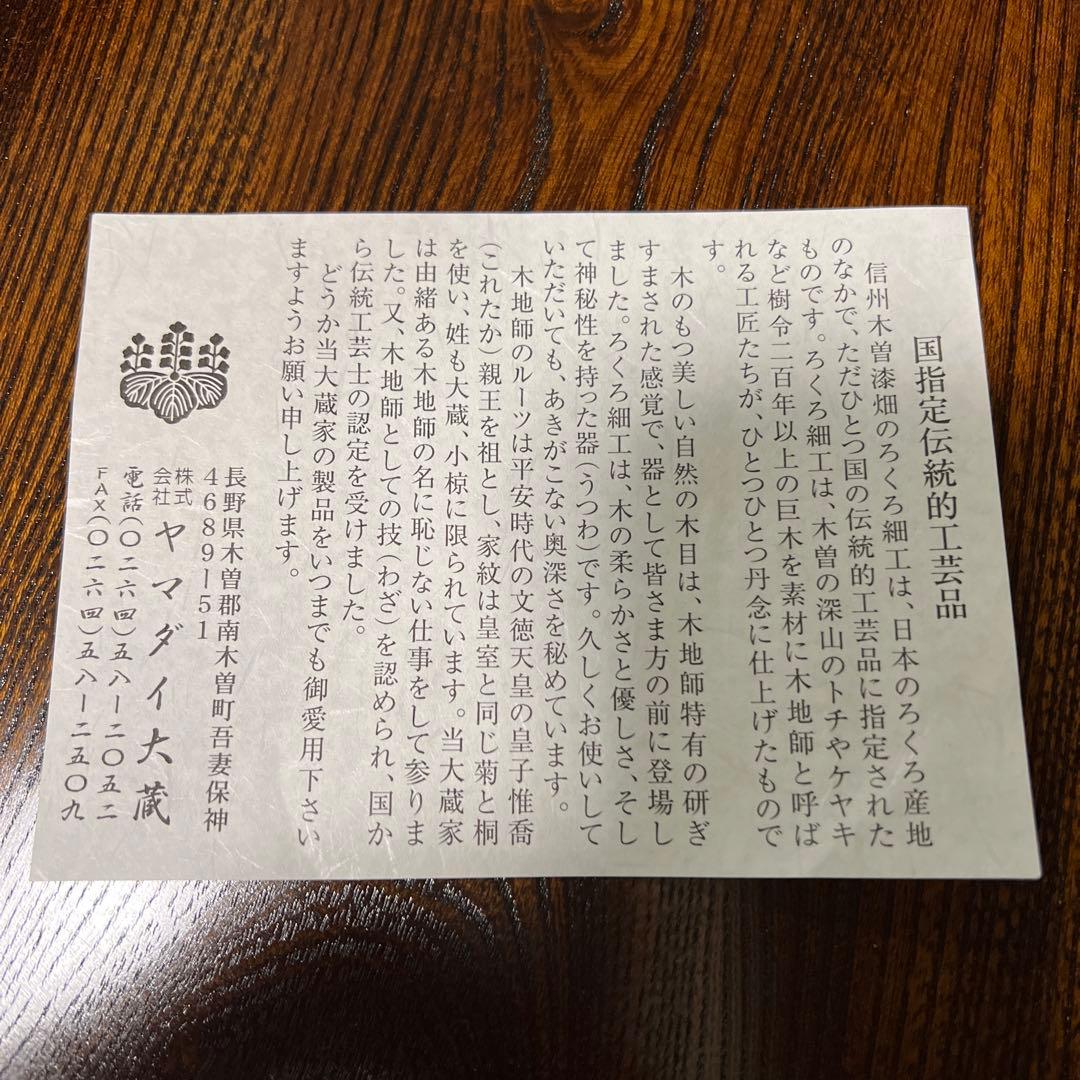 国指定伝統的工芸品
信州木曽漆畑のろくろ細工は、日本のろくろ産地
のなかで、ただひとつ国の伝統的工芸品に指定された
ものです。ろくろ細工は、木曽の深山のトチやケヤキ
など樹令二百年以上の巨木を素材に木地師と呼ば
れる工匠たちが、ひとつひとつ丹念に仕上げたもので
す。
木のもつ美しい自然の木目は、木地師特有の研ぎ
すまされた感覚で、器として皆さま方の前に登場し
ました。ろくろ細工は、木の柔らかさと優しさ、そし
て神秘性を持った器(うつわ)です。久しくお使いして
いただいても、あきがこない奥深さを秘めています。
木地師のルーツは平安時代の文徳天皇の皇子惟喬
(これたか)親王を祖とし、家紋は皇室と同じ菊と桐
を使い、姓も大蔵、小椋に限られています。当大蔵家
は由緒ある木地師の名に恥じない仕事をして参りま
した。又、木地師としての技(わざ)を認められ、国か
ら伝統工芸士の認定を受けました。
どうか当大蔵家の製品をいつまでも御愛用下さい
ますようお願い申し上げます。
長野県木曽郡南木曽町吾妻保神
4689-51
株式会社 ヤマダイ大蔵
電話(〇二六四)五八-二〇五二
FAX(〇二六四)五八-二五〇九